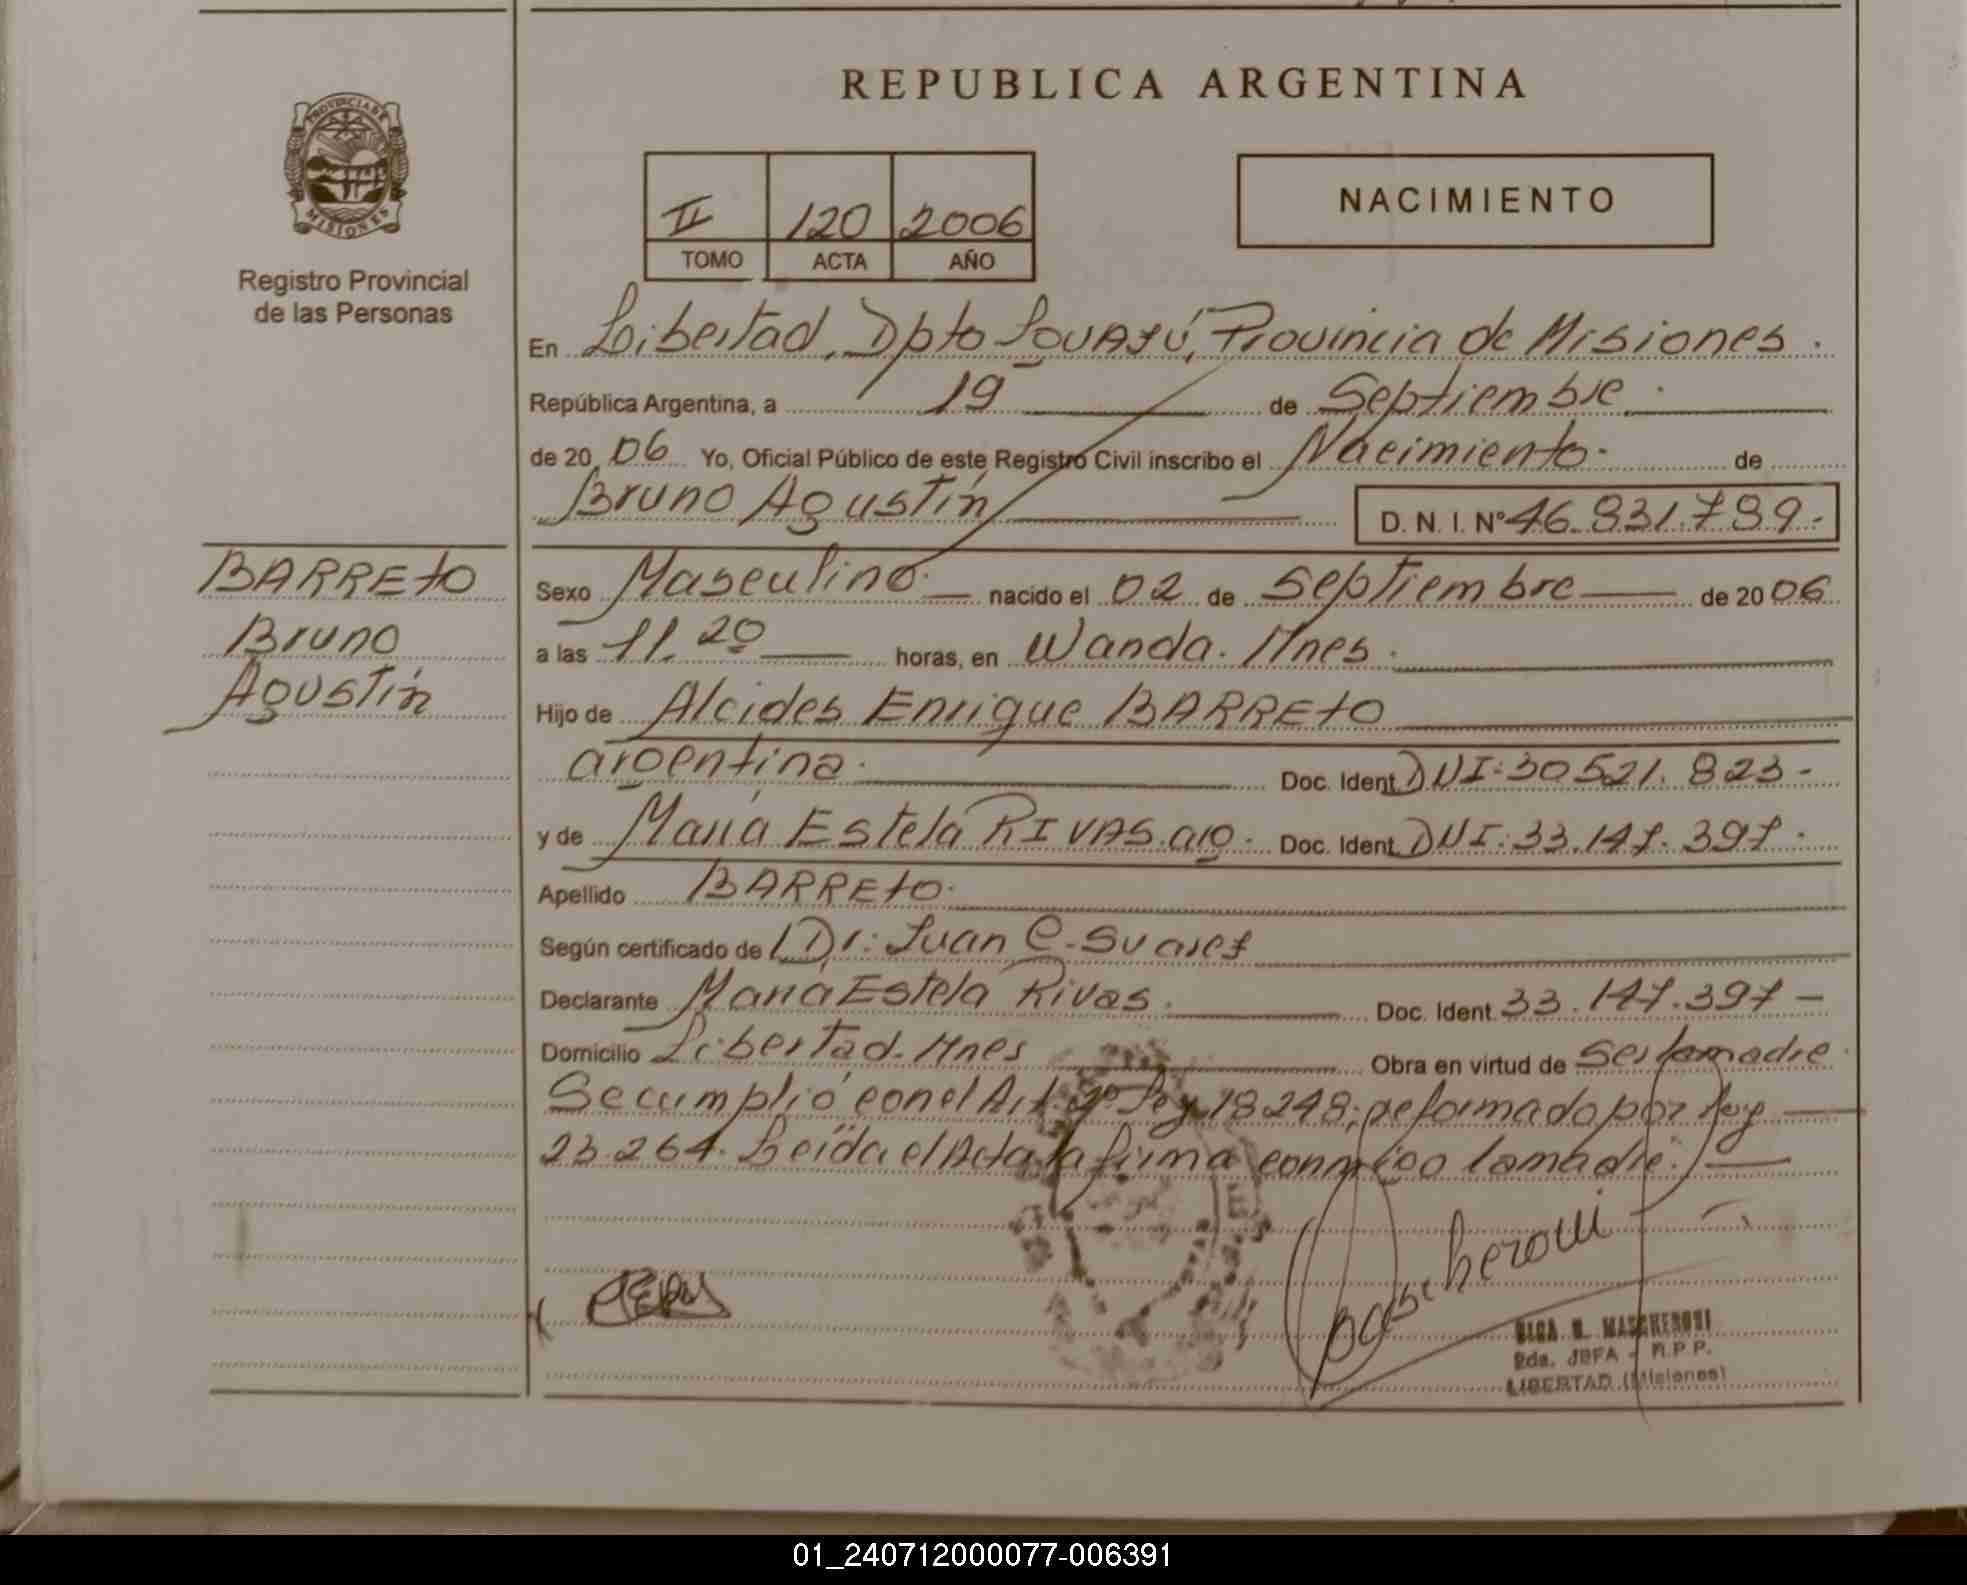 REPUBLICA ARGENTINA
PROVINCIA DE MISIONES
Registro Provincial
de las Personas
II 120 2006
TOMO ACTA AÑO
NACIMIENTO
En Libertad, Dpto Iguazú, Provincia de Misiones.
República Argentina, a 19 de Septiembre.
de 20 06 Yo, Oficial Público de este Registro Civil inscribo el Nacimiento. de
Bruno Agustín D. N. I. Nº 46.831.789.-
BARRETO
Bruno
Agustín
Sexo Masculino. nacido el 02 de Septiembre de 20 06
a las 11.20 horas, en Wanda. Mnes.
Hijo de Alcides Enrique BARRETO
argentina. Doc. Ident DNI: 30521.823-
y de María Estela RIVAS. arg. Doc. Ident DNI: 33.147.397.
Apellido BARRETO.
Según certificado de Dr: Juan C. Suarez
Declarante María Estela Rivas. Doc. Ident. 33.147.397-
Domicilio Libertad. Mnes Obra en virtud de Ser la madre.
Se cumplió con el Art. 2º Ley 18248; reformado por Ley
23.264. Leída el Acta la firma conmigo la madre.
Mascheroni
OLGA MASCHERONI
JEFA - R.P.P.
LIBERTAD (Misiones)
01_240712000077-006391